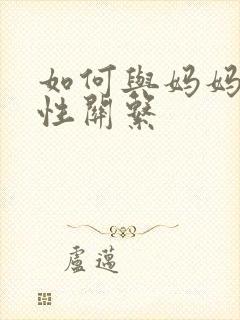 如何與妈妈
性關繫
盧邁